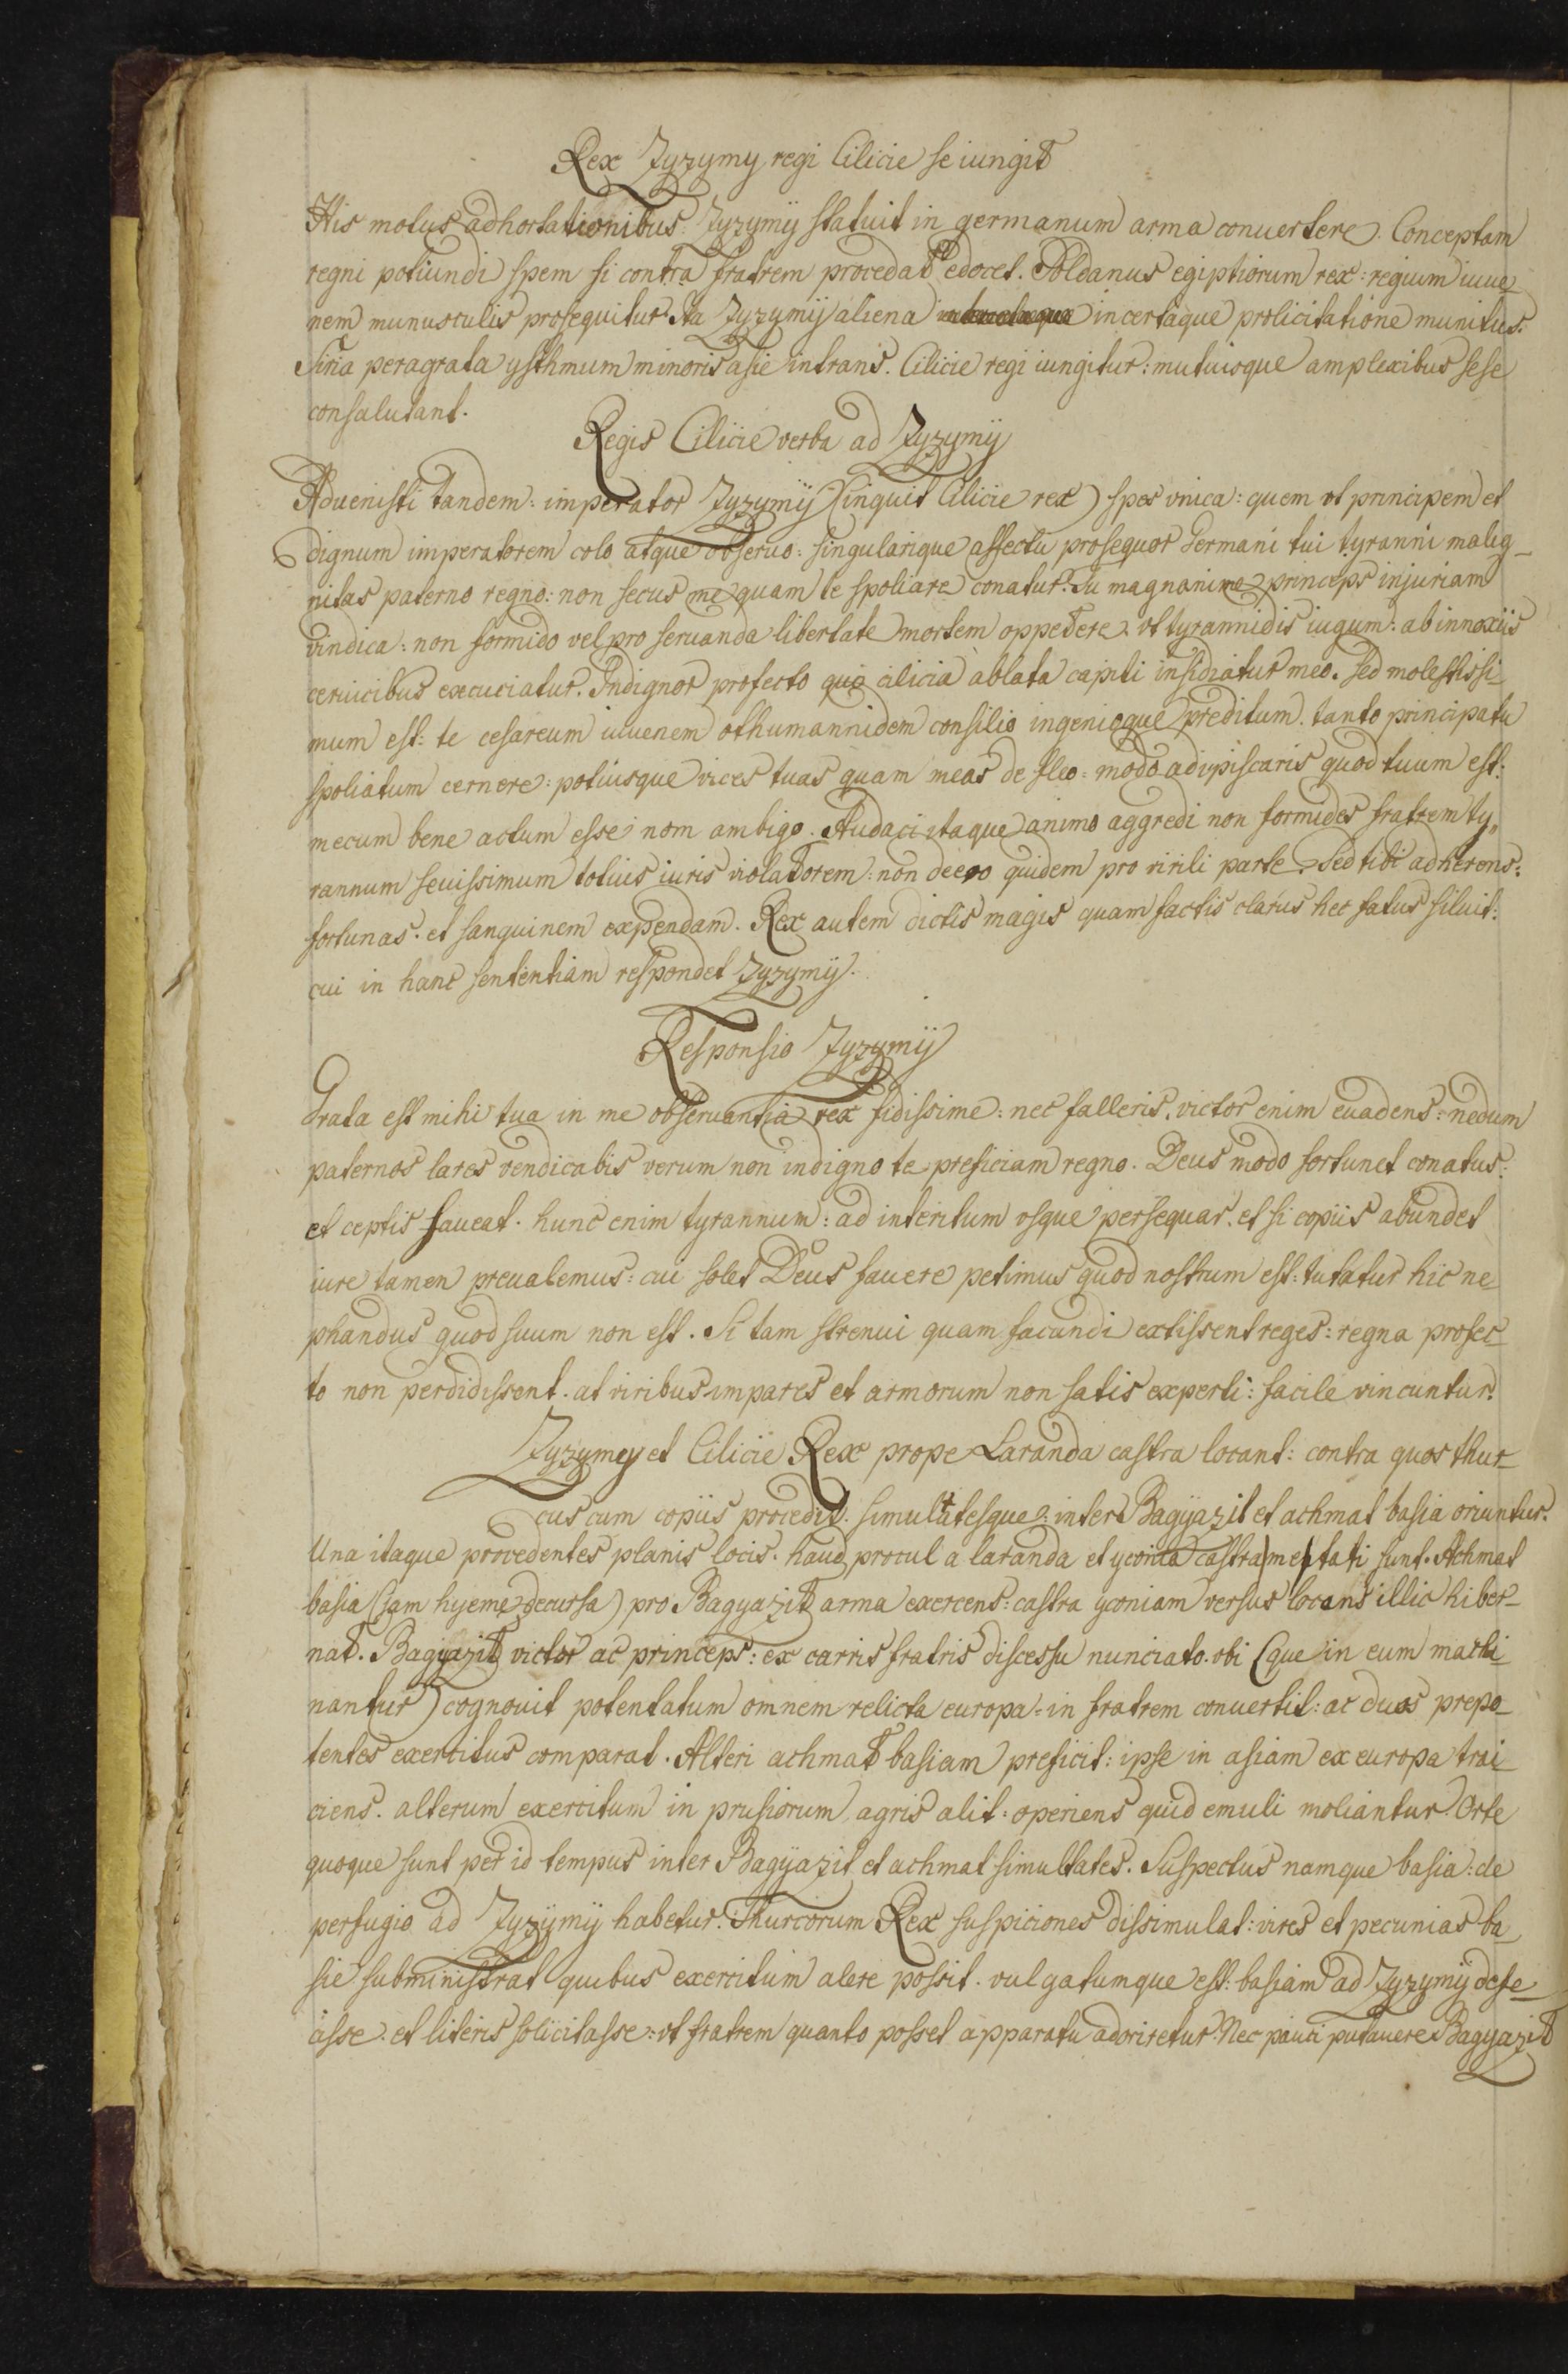 Rex Zyzymy regi Cilicie se iungit
His motus adhortationibus Zyzymÿ statuit in germanum arma conuertere. Conceptam
regni potiundi spem si contra fratrem procedat edocet. Soldanus egiptiorum rex: regium iuue
nem munusculis prosequitur. Ita Zyzymÿ aliena incertaque prolicitatione munitus:
Siria peragrata ysthmum minoris asie intrans. Cilicie regi iungitur: mutuisque amplexibus sese
consalutant.
Regis Cilicie verba ad Zyzymÿ
Aduenisti tandem: imperator Zyzymÿ (inquit Cilicie rex) spes vnica: quem vt principem et
dignum imperatorem colo atque obseruo: singularique affectu prosequor Germani tui tyranni malig_
nitas paterno regno: non secus me quam te spoliare conatur. Tu magnanime princeps injuriam
vindica: non formido vel pro seruanda libertate mortem oppetere: vt tyrannidis iugum: ab innoxiis
ceruicibus excuciatur. Indignor profecto quo cilicia ablata capiti insidiatur meo. sed molestissi_
mum est: te cesareum iuuenem othumannidem consilio ingenioque preditum. tanto principatu
spoliatum cernere: potiusque vices tuas quam meas de fleo: modo adipiscaris quod tuum est:
mecum bene actum esse nom ambigo. Audaci itaque animo aggredi non formides fratrem ty„
rannum seuissimum totius iuris violatorem: non deero quidem pro virili parte. Sed tibi adherens:
fortunas. et sanguinem expendam. Rex autem dictis magis quam factis clarus hec fatus siluit:
cui in hanc sententiam respondet Zyzymÿ.
Responsio Zyzymÿ
Grata est mihi tua in me obseruantia rex fidissime: nec falleris. victor enim euadens: nedum
paternos lares vendicabis verum non indigno te preficiam regno. Deus modo fortunet conatus:
et ceptis faueat. hunc enim tyrannum: ad interitum vsque persequar. et si copiis abundet
iure tamen preualemus: cui solet Deus fauere petimus quod nostrum est: tutatur hic ne
phandus quod suum non est. Si tam strenui quam facundi extissent reges: regna profec_
to non perdidissent. at viribus impares et armorum non satis experti: facile vincuntur.
Zyzymey et Cilicie Rex prope Laranda castra locant: contra quos thur_
cus cum copiis procedit. simultatesque: inter Bagÿazit et achmat basia oriuntur.
Una itaque procedentes planis locis. haud procul a laranda et yconia castra metati sunt. Achmat
basia (iam hyeme decursa) pro Bagyazit arma exercens: castra yconiam versus locans illic hiber_
nat. Bagyazit victor ac princeps: ex carris fratris discessu nunciato. vbi (que in eum machi_
nantur) cognouit potentatum omnem relicta europa: in fratrem conuertit: ac duos prepo_
tentes exercitus comparat. Alteri achmat basiam preficit: ipse in asiam ex europa trai_
ciens. alterum exercitum in prusiorum agris alit: operiens quid emuli moliantur. Orte
quoque sunt per id tempus inter Bagÿazit et achmat simultates. Suspectus namque basia: de
perfugio ad Zyzÿmÿ habetur. Thurcorum Rex suspiciones dissimulat: vires et pecunias ba_
sie subministrat quibus exercitum alere possit. vulgatumque est: basiam ad Zyzymÿ defe_
asse. et literis solicitasse: vt fratrem quanto posset apparatu adoriretur. Nec pauci putauere Bagyazit